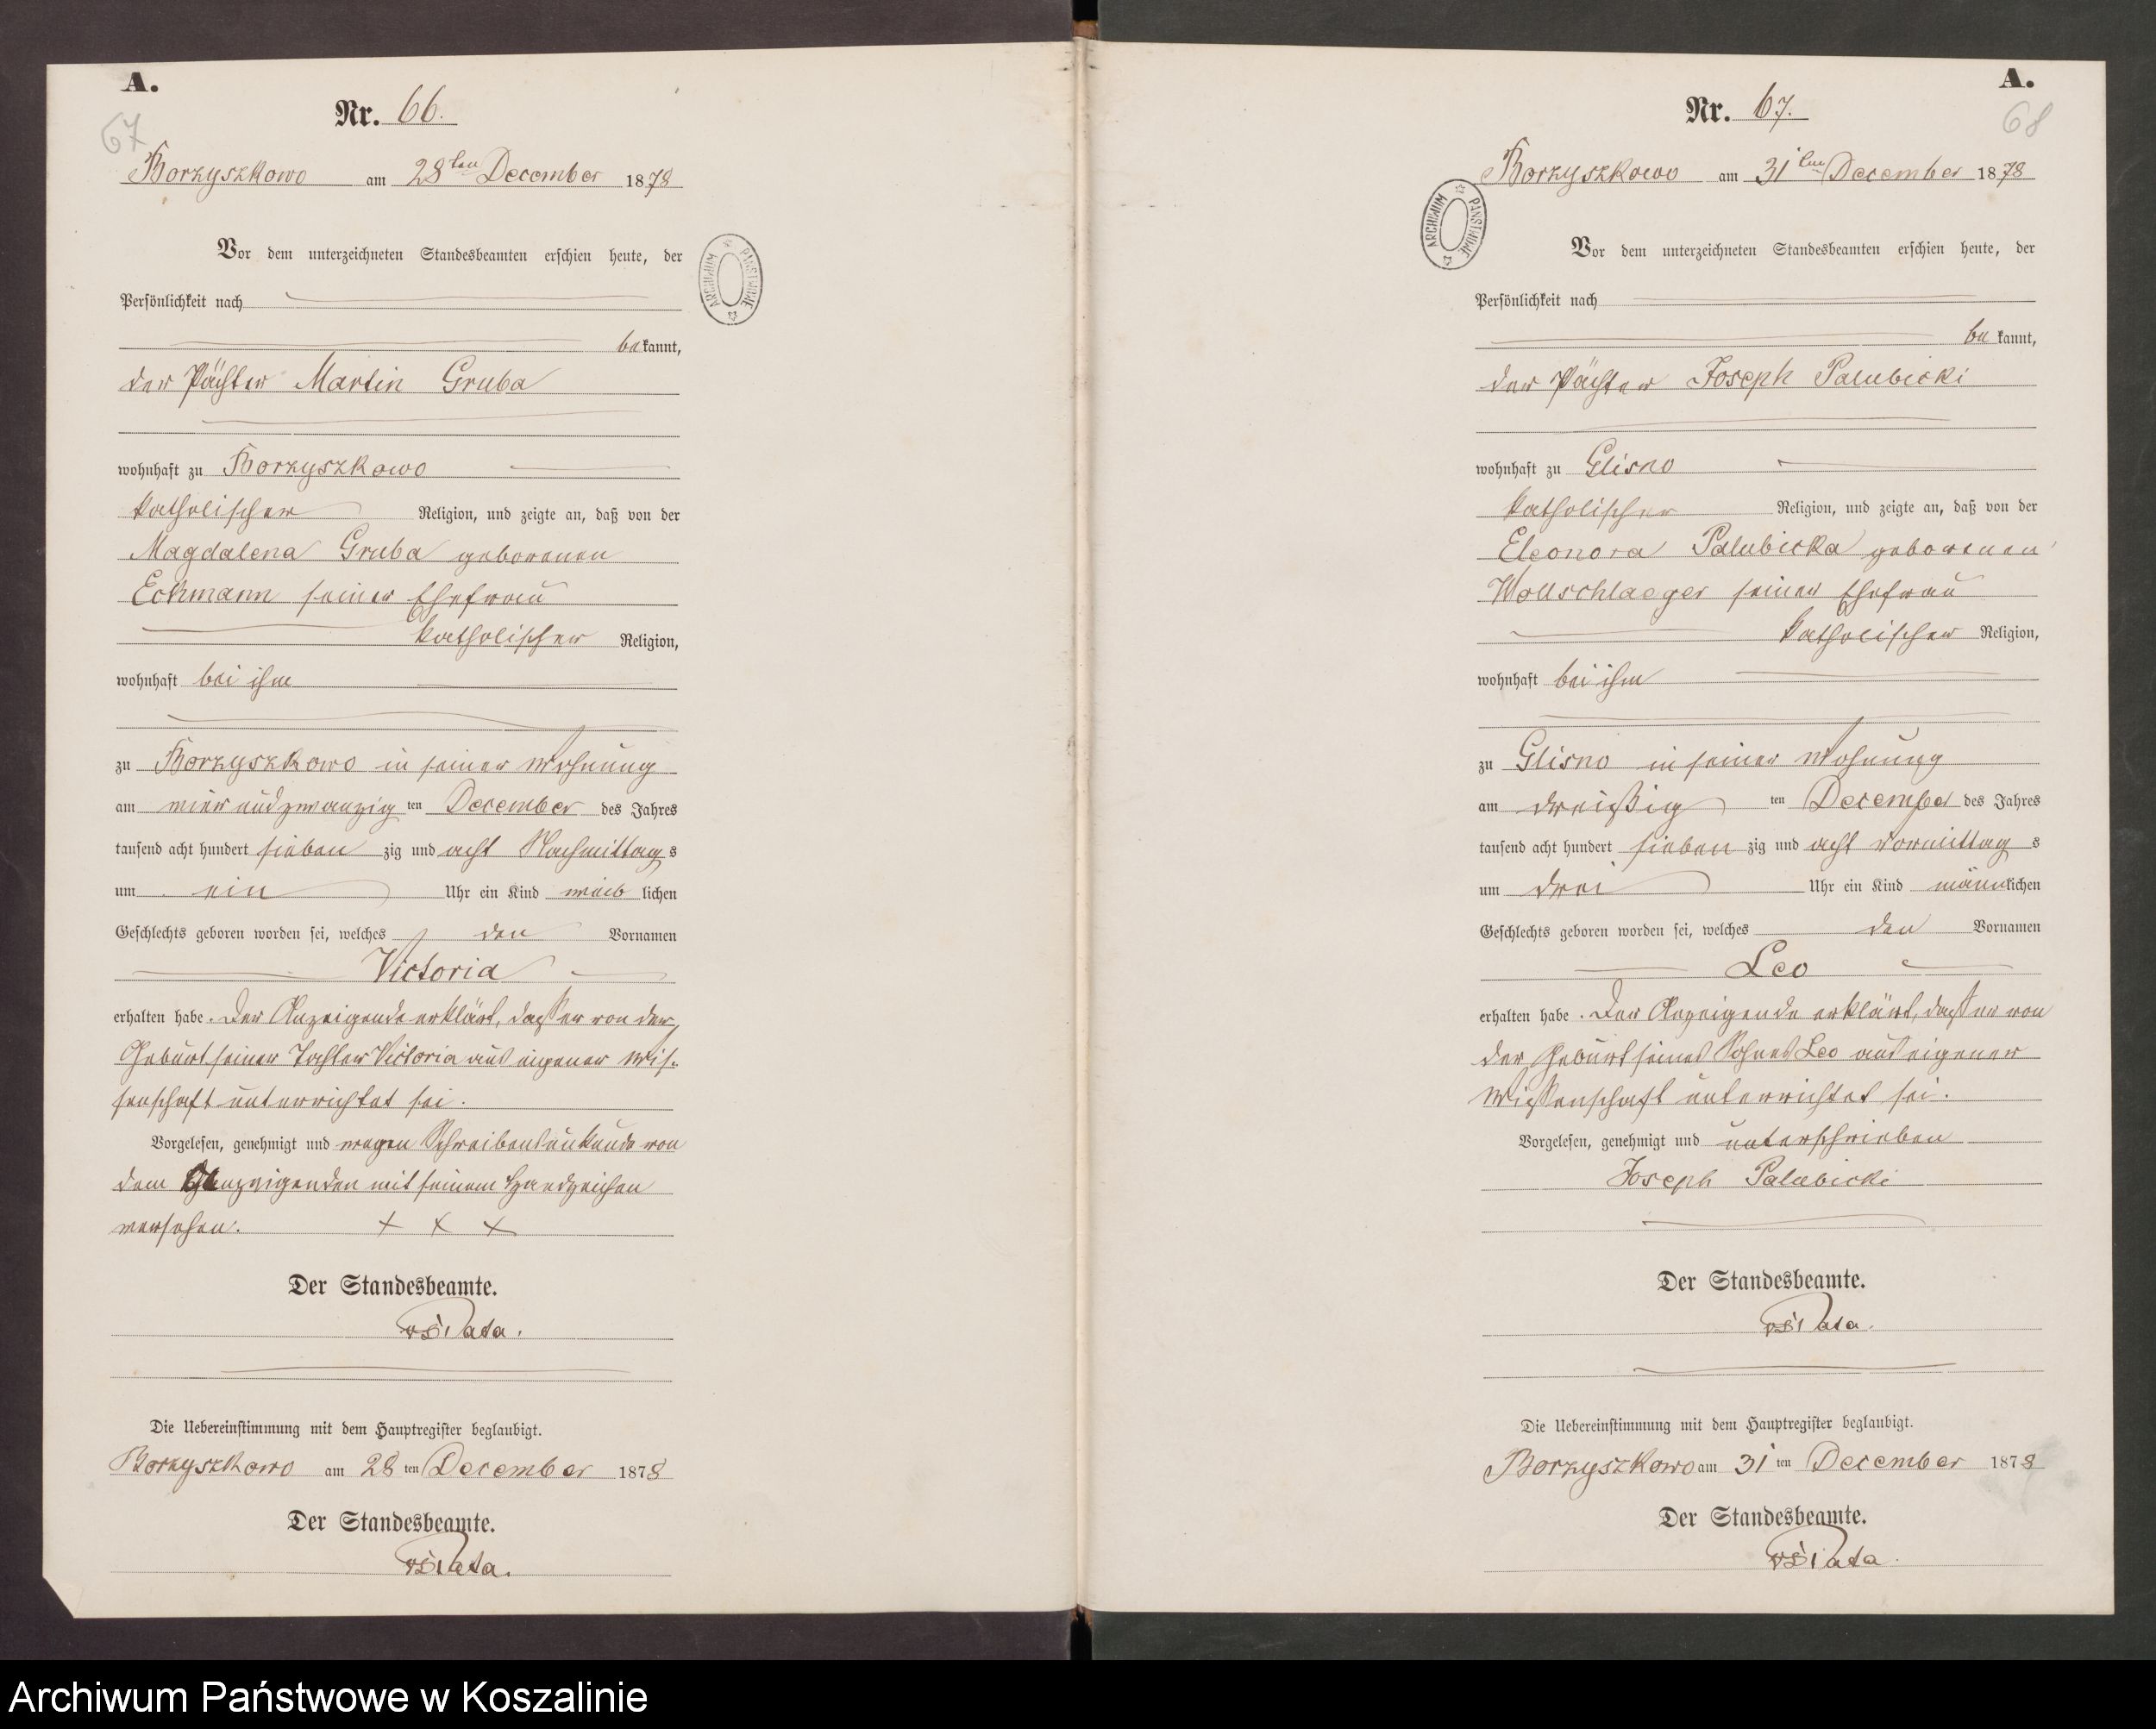 A.
67
Nr. 66.
Borzyszkowo am 28ten December 1878
Vor dem unterzeichneten Standesbeamten erschien heute, der
Persönlichkeit nach
bekannt,
der Pächter Martin Gruba
wohnhaft zu Borzyszkowo
katholischer Religion, und zeigte an, daß von der
Magdalena Gruba geborenen
Eckmann seiner Ehefrau
katholischer Religion,
wohnhaft bei ihm
zu Borzyszkowo in seiner Wohnung
am vier und zwanzig ten December des Jahres
tausend acht hundert sieben zig und acht Nachmittag s
um ein Uhr ein Kind weib lichen
Geschlechts geboren worden sei, welches den Vornamen
Victoria
erhalten habe. Der Anzeigende erklärt, dass er von der
Geburt seiner Tochter Victoria aus eigener Wis-
senschaft unterrichtet sei.
Vorgelesen, genehmigt und wegen Schreibensunkunde von
dem Anzeigenden mit seinem Handzeichen
versehen. + + +
Der Standesbeamte.
Die Uebereinstimmung mit dem Hauptregister beglaubigt.
Borzyszkowo am 28 ten December 1878
Der Standesbeamte.
ARCHIWUM PAŃSTWOWE
A.
68
Nr. 67.
Borzyszkowo am 31ten December 1878
ARCHIWUM PAŃSTWOWE
Vor dem unterzeichneten Standesbeamten erschien heute, der
Persönlichkeit nach
be kannt,
der Pächter Joseph Palubicki
wohnhaft zu Glisno
katholischer Religion, und zeigte an, daß von der
Eleonora Palubicka geborenen
Wollschlaeger seiner Ehefrau
katholischer Religion,
wohnhaft bei ihm
zu Glisno in seiner Wohnung
am dreißig ten December des Jahres
tausend acht hundert sieben zig und acht Vormittag s
um drei Uhr ein Kind männlichen
Geschlechts geboren worden sei, welches den Vornamen
Leo
erhalten habe. Der Anzeigende erklärt, dass er von
der Geburt seines Sohnes Leo aus eigener
Wissenschaft unterrichtet sei.
Vorgelesen, genehmigt und unterschrieben
Joseph Palubicki
Der Standesbeamte.
Die Uebereinstimmung mit dem Hauptregister beglaubigt.
Borzyszkowo am 31 ten December 1878
Der Standesbeamte.
Archiwum Państwowe w Koszalinie